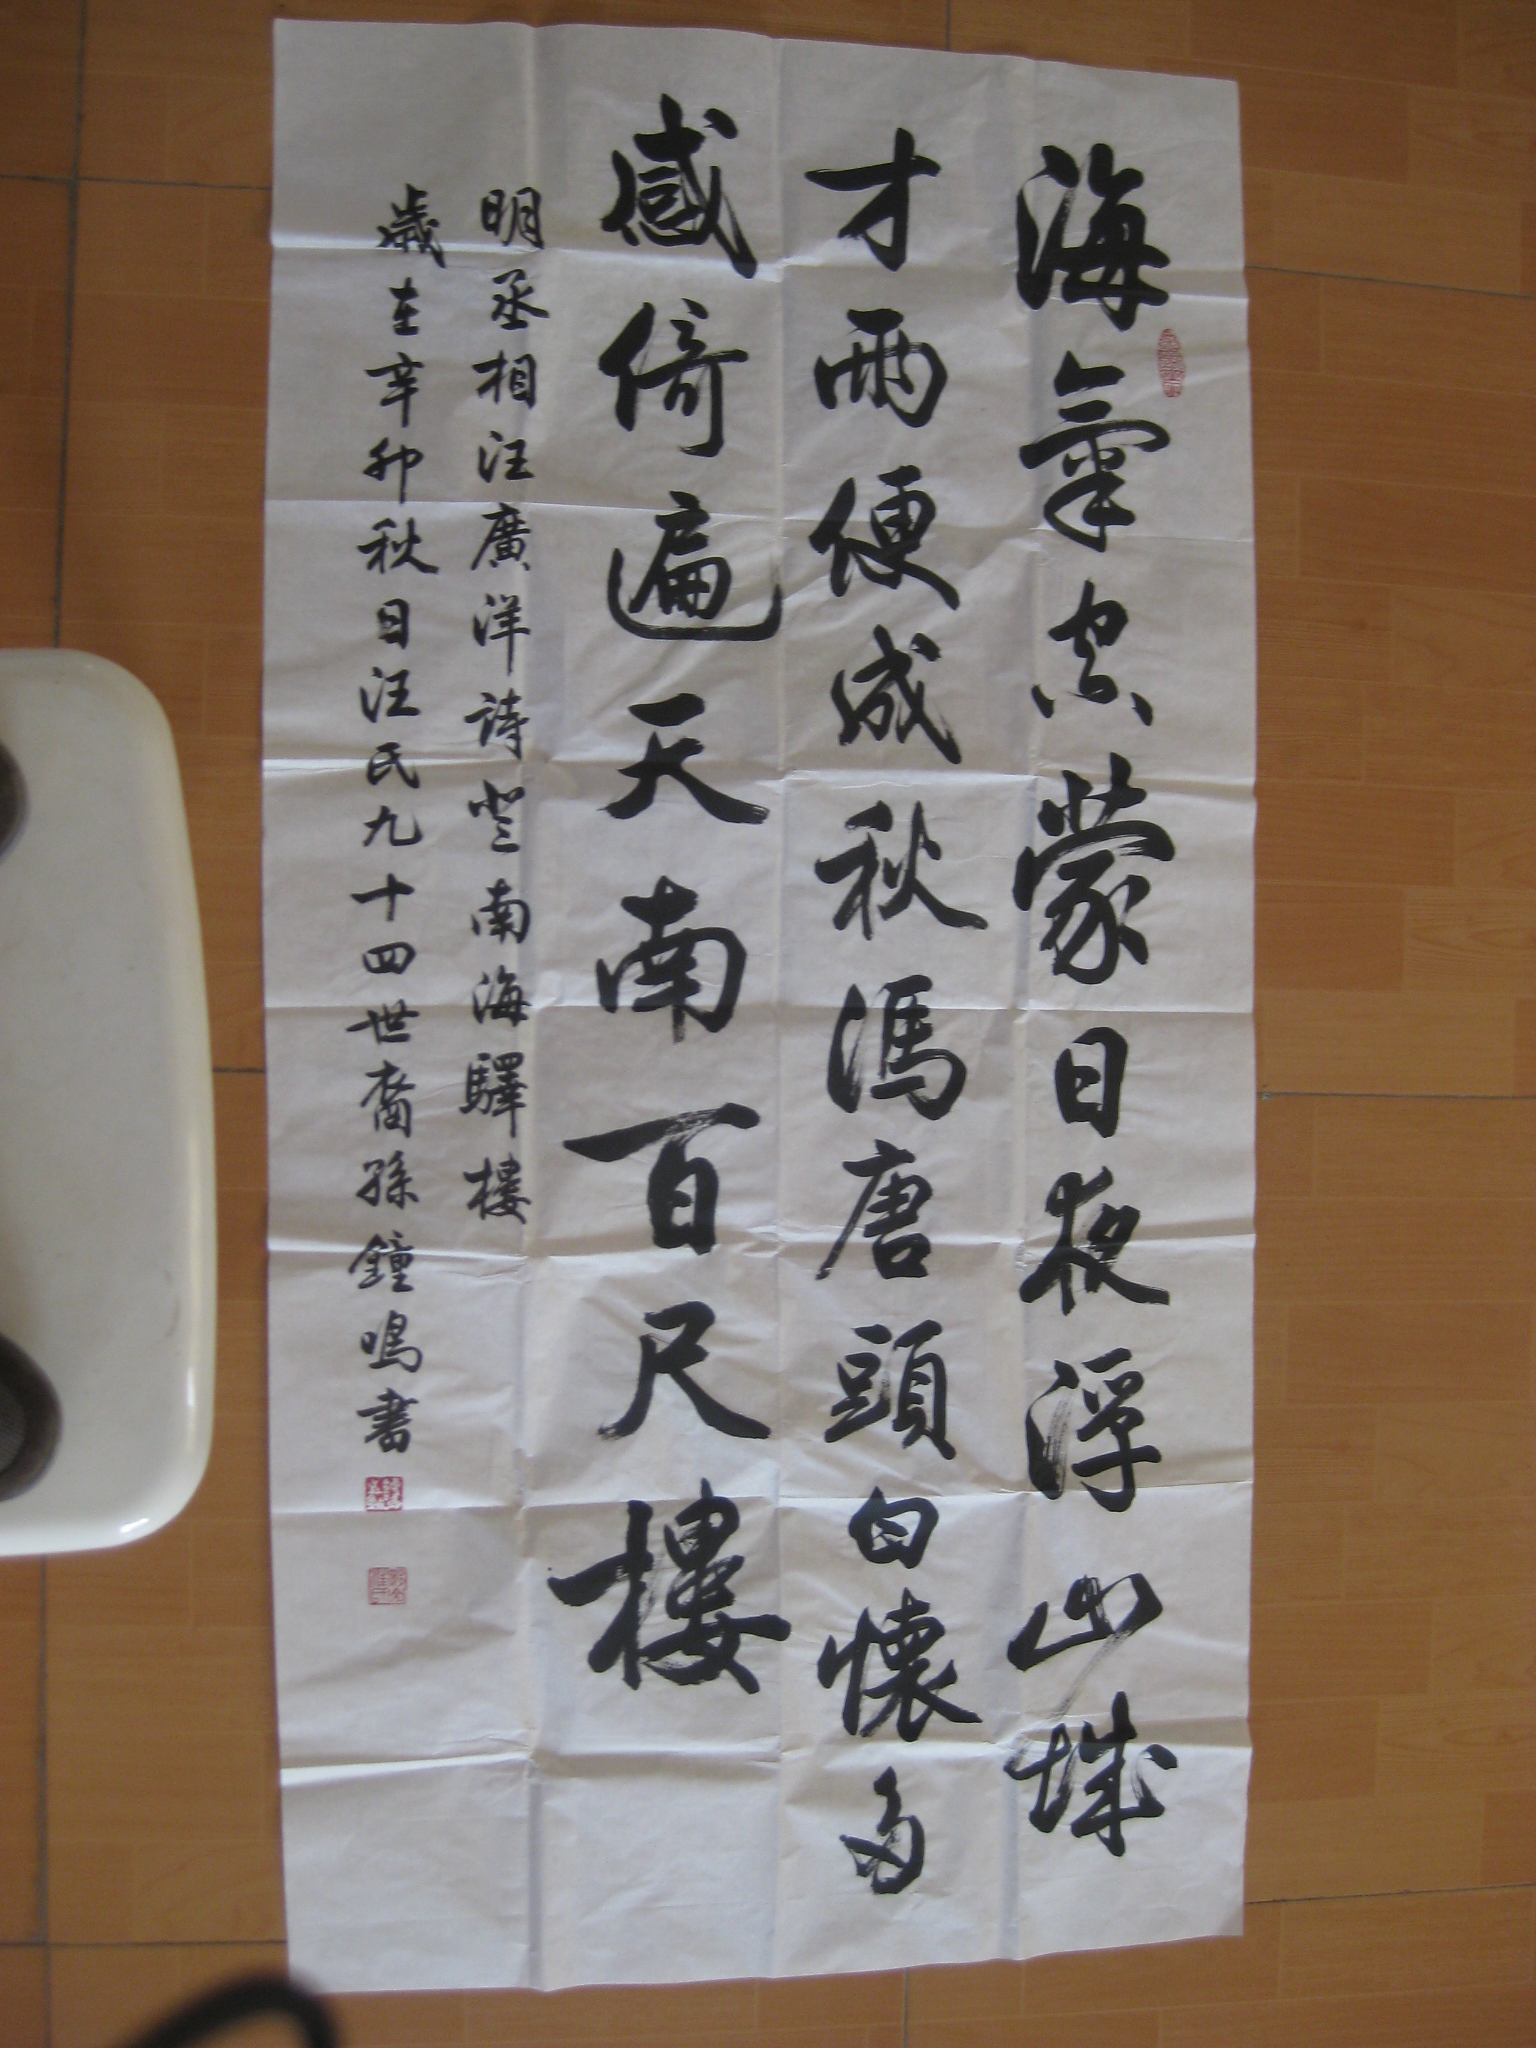 海氣空蒙日夜浮山城
才雨便成秋馮唐頭白懷多
感倚遍天南百尺樓
明丞相汪廣洋詩登南海驛樓
歲在辛卯秋日汪氏九十四世裔孫鐘鳴書